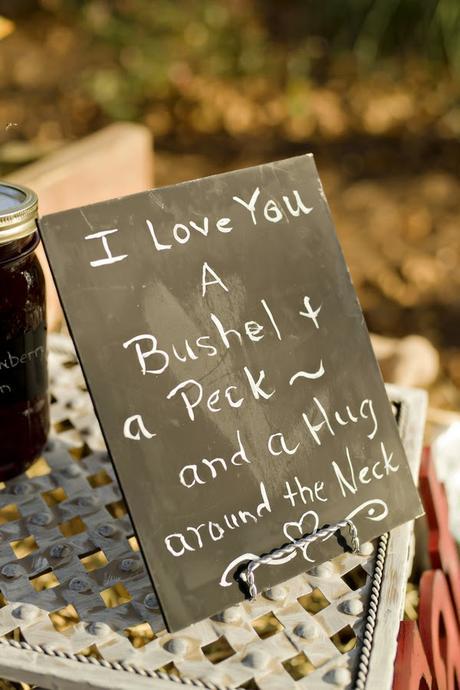 I Love You
A
Bushel +
a Peck ~
and a Hug
around the Neck